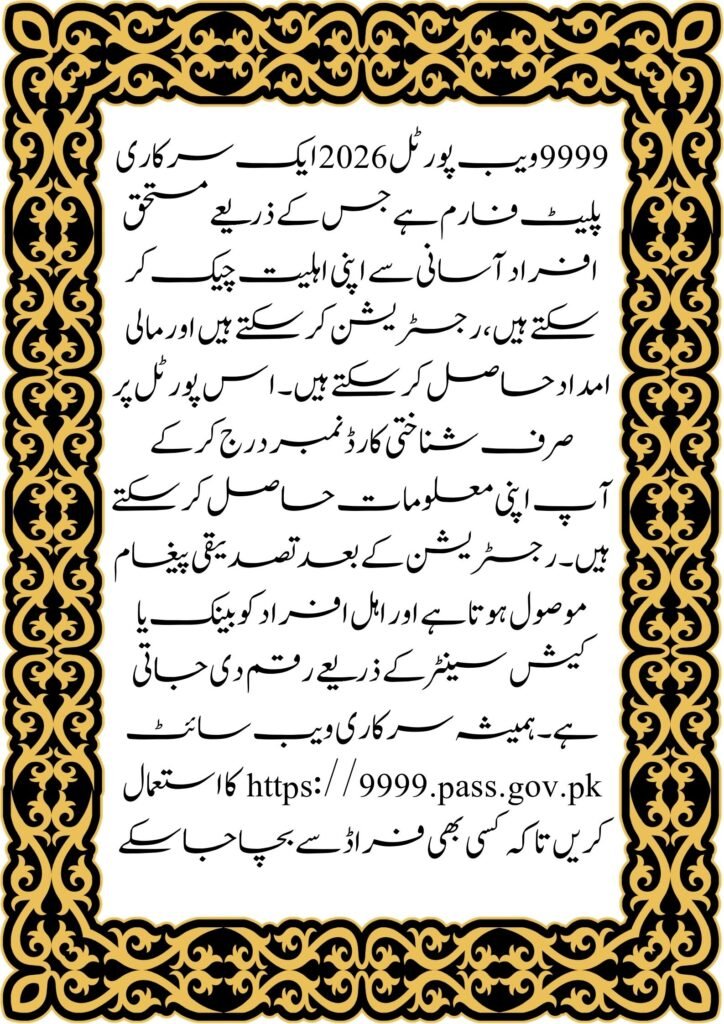 9999ویب پورٹل 2026 ایک سرکاری
پلیٹ فارم ہے جس کے ذریعے مستحق
افراد آسانی سے اپنی اہلیت چیک کر
سکتے ہیں، رجسٹریشن کر سکتے ہیں اور مالی
امداد حاصل کر سکتے ہیں۔ اس پورٹل پر
صرف شناختی کارڈ نمبر درج کر کے
آپ اپنی معلومات حاصل کر سکتے
ہیں۔ رجسٹریشن کے بعد تصدیقی پیغام
موصول ہوتا ہے اور اہل افراد کو بینک یا
کیش سینٹر کے ذریعے رقم دی جاتی
ہے۔ ہمیشہ سرکاری ویب سائٹ
https://9999.pass.gov.pk کا استعمال
کریں تاکہ کسی بھی فراڈ سے بچا جا سکے